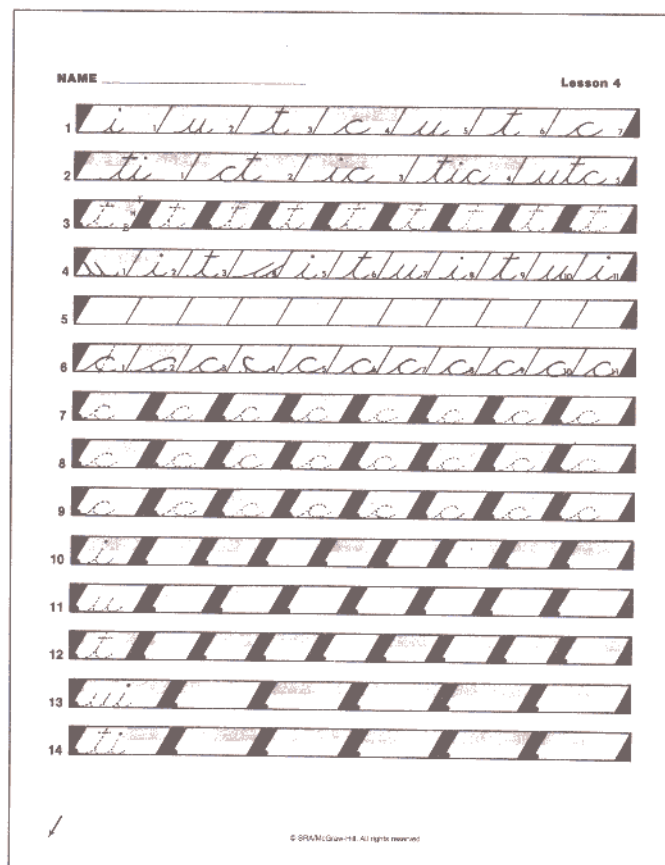 NAME Lesson 4
1 i 1 u 2 t 3 c 4 u 5 t 6 c 7
2 ti 1 ct 2 ic 3 tic 4 utc 5
3 t t t t t t t t t
4 1 i 2 t 3 i 5 t 6 u 7 i 8 t 9 u 10 i 11
5
6 c 1 c 2 c 3 c 4 c 5 c 6 c 7 c 8 c 9 c 10 c 11
7 c c c c c c c c
8 c c c c c c c c
9 c c c c c c c c
10 i
11 u
12 t
13 ui
14 ti
© SRA/McGraw-Hill. All rights reserved